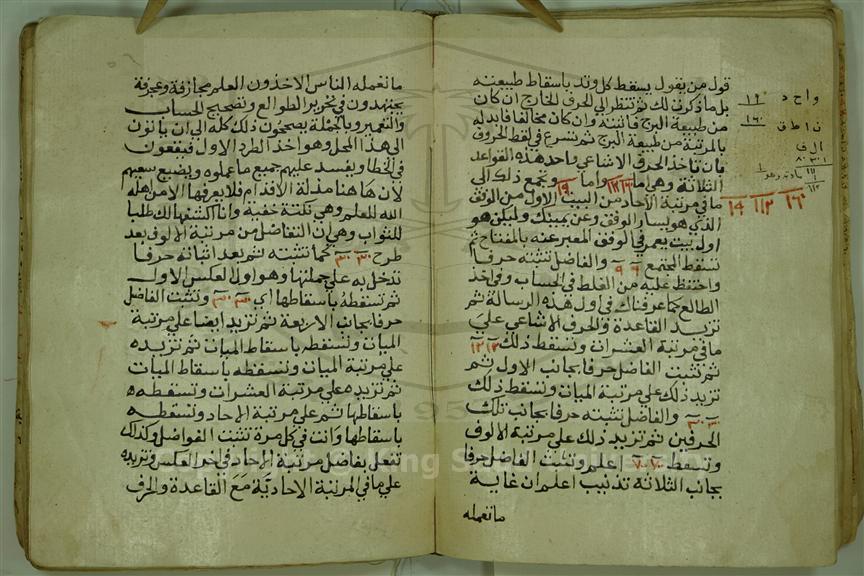 قول من يقول يسقط كل وتد باسقاط طبيعته
بل ماذكرت لك ثم تنظر الى الحرف الخارج ان كان
من طبيعة البرج فاثبته وان كان مخالفا فابدله
بالمرتبة من طبيعة البرج ثم تشرع في لقط الحروف
بان تاخذ الحرف الاشاعي واحد هذه القواعد
الثلاثة وهي اما واما وتجمع ذلك الى
ما في مرتبة الآحاد من البيت الاول من الوفق
الذي هو يسار الوفق وعن يمينك وليكن هو
اول بيت يعمر في الوفق المعبر عنه بالمفتاح ثم
تسقط المجتمع ٩ ٩ والفاضل تثبته حرفا
واحتفظ عليه من الغلط في الحساب وفي اخذ
الطالع كما عرفناك في اول هذه الرسالة ثم
تزيد القاعدة والحرف الاشاعي على
ما في مرتبة العشرات وتسقط ذلك ١٢ ١٢
ثم تثبت الفاضل حرفا بجانب الاول ثم
تزيد ذلك على مرتبة الميات وتسقط ذلك
٣٠ ٣٠ والفاضل تثبته حرفا بجانب تلك
الحرفين ثم تزيد ذلك على مرتبة الالوف
وتسقط اعلم وتثبت الفاضل حرفا
بجانب الثلاثة تذنيب اعلم ان غاية
ما تعمله
واحد
ناطق
الف
ما تعمله الناس الاخذون العلم مجازفة وعجرفة
يجتهدون في تحرير الطوالع وتصحيح الحساب
والتعمير وبالجملة يصححون ذلك كله الى ان ياتون
الى هذا المحل وهو اخذ الطرد الاول فيقعون
في الخطا ويفسد عليهم جميع ما عملوه ويضيع سعيهم
لأن هاهنا مذلة الاقدام فلا يعرفها الا من اهله
الله للعلم وهي نكتة خفية وانا اكشفها لك طلبا
للثواب وهي ان التفاضل من مرتبة الالوف بعد
طرح ٣٠ ٣٠ كما تثبته ثم بعد اثباته حرفا
تدخل به على جملتها وهو اول العكس الاول
ثم تسقطه باسقاطها اي ٣٠ ٣٠ وتثبت الفاضل
حرفا بجانب الاربعة ثم تزيد ايضا على مرتبة
الميات وتسقطه باسقاط الميات ثم تزيده
على مرتبة الميات وتسقطه باسقاط الميات
ثم تزيده على مرتبة العشرات وتسقطه
باسقاطها ثم على مرتبة الاحاد وتسقطه
باسقاطها وانت في كل مرة تثبت الفواضل وكذلك
تفعل بفاضل مرتبة الاحاد في اخر العكس وتزيده
على ما في المرتبة الاحادية مع القاعدة والحرف